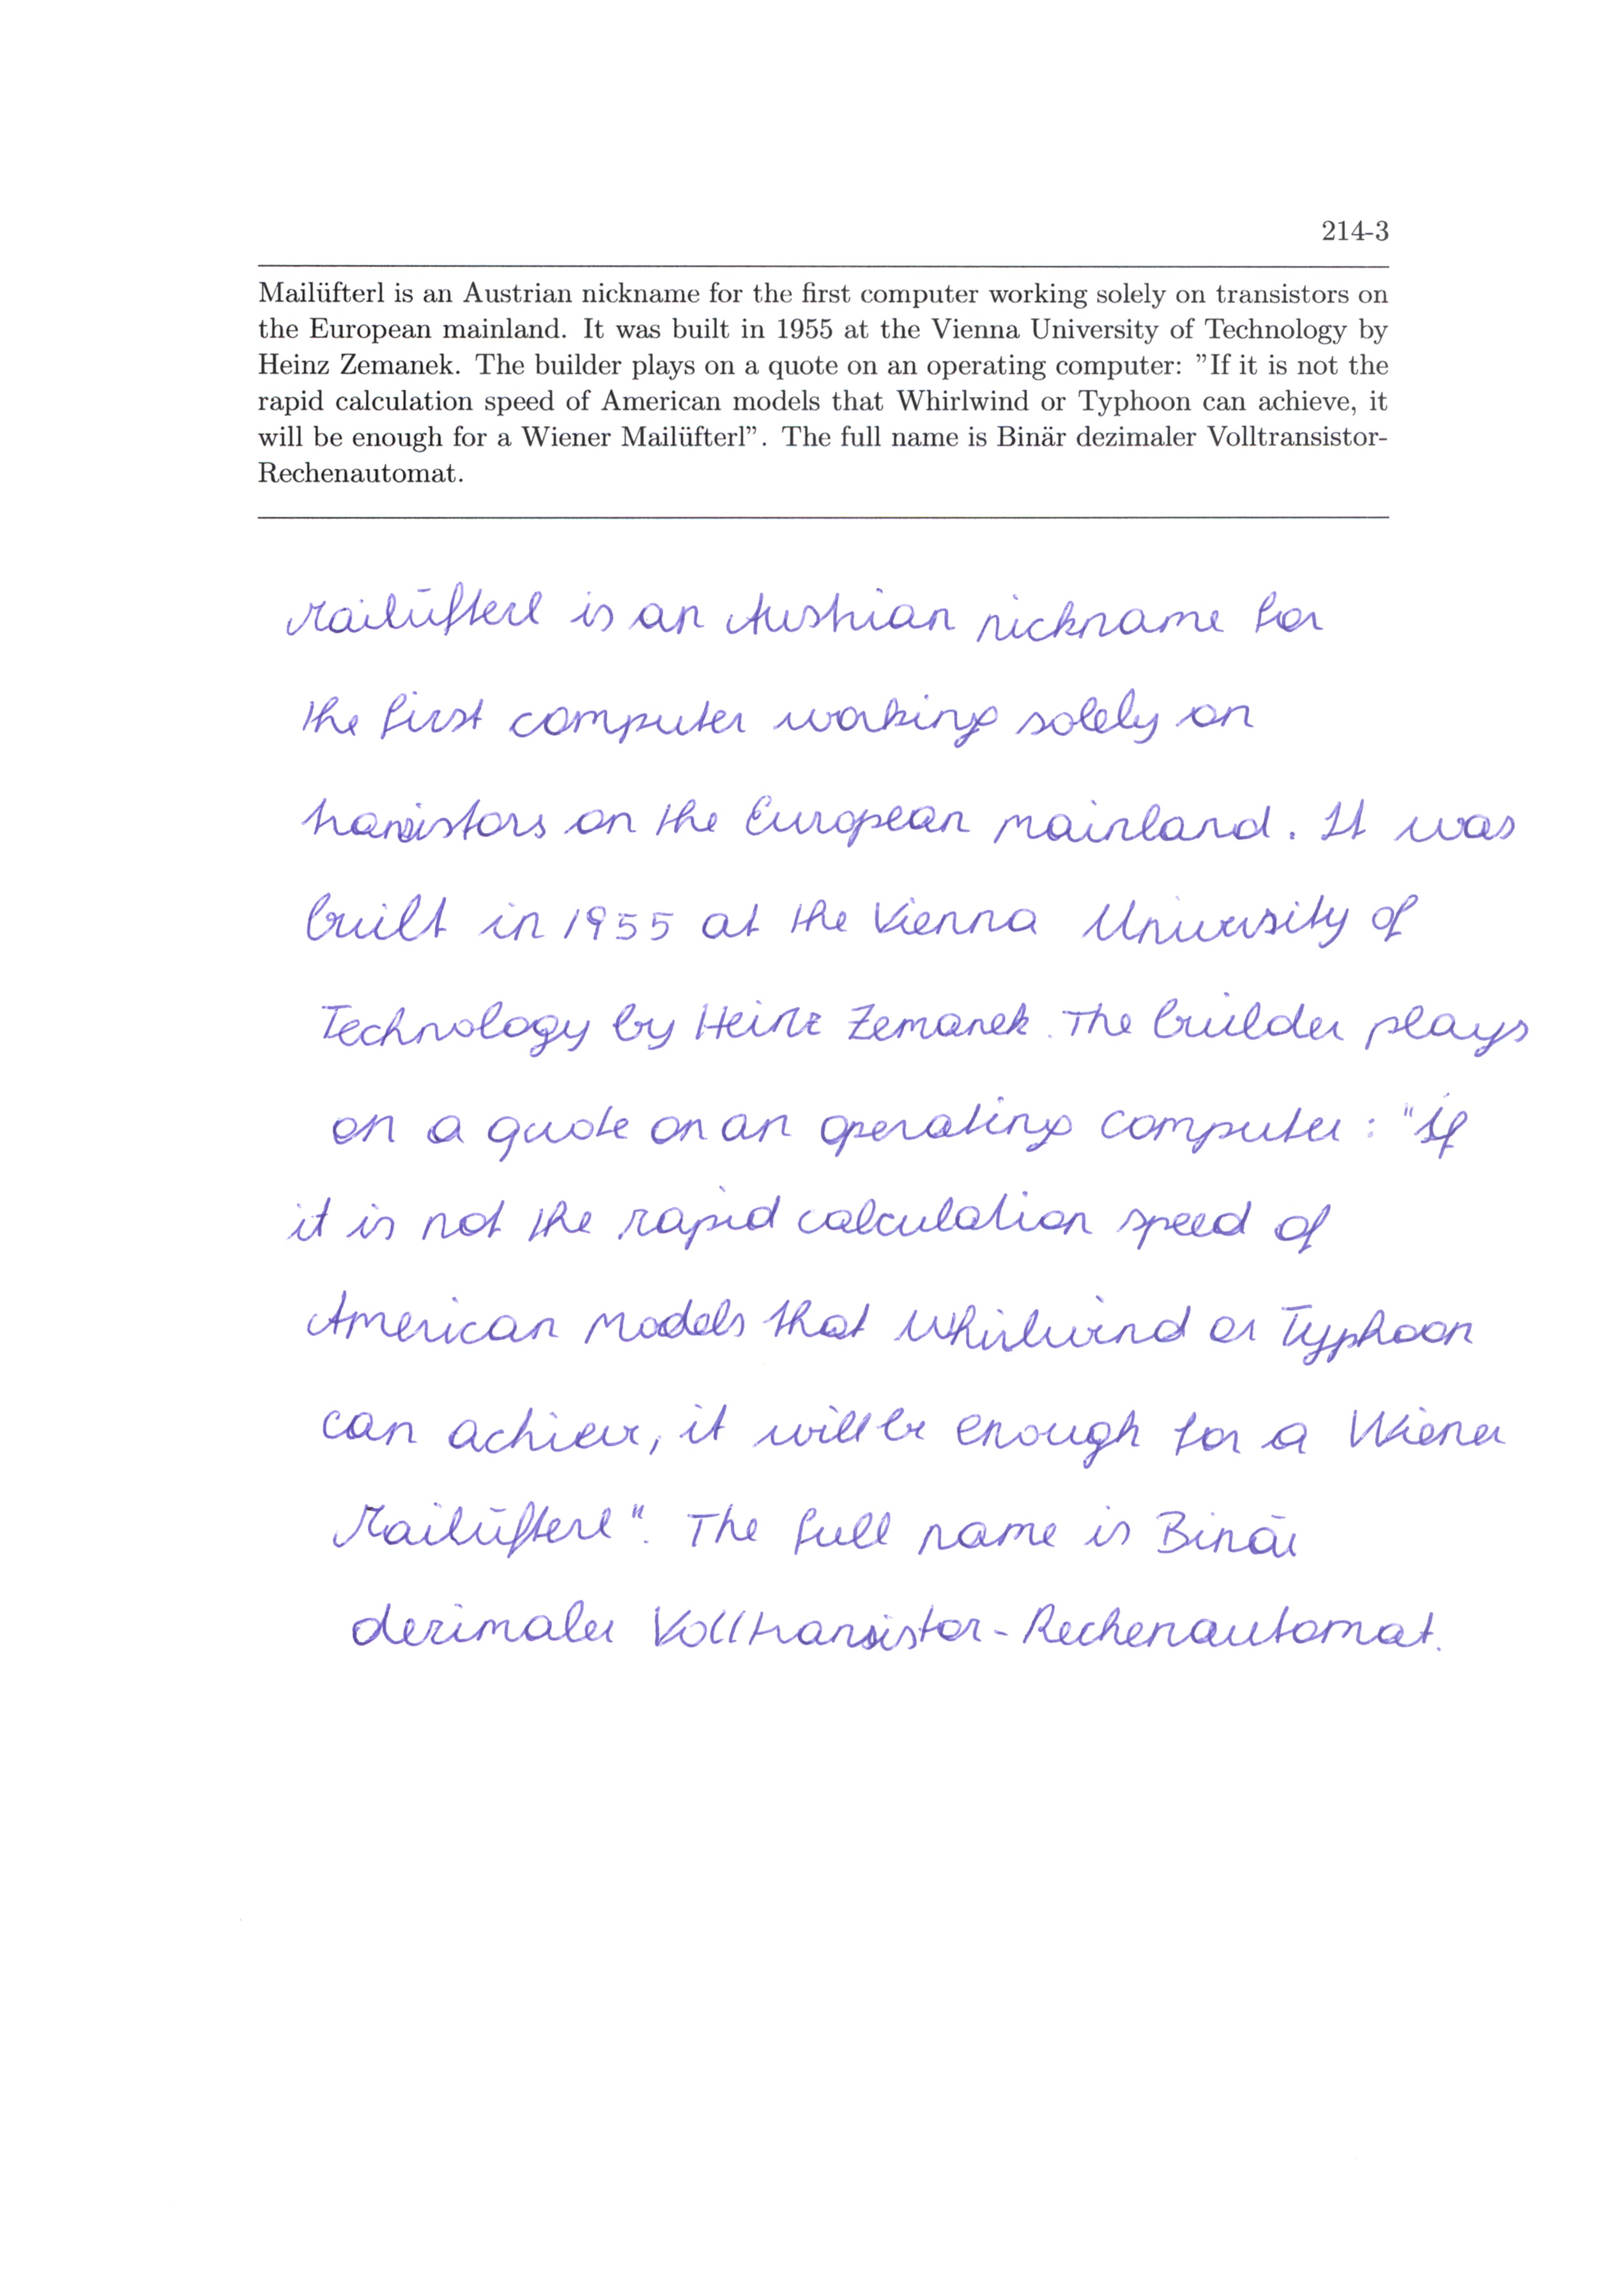 214-3
Mailüfterl is an Austrian nickname for the first computer working solely on transistors on
the European mainland. It was built in 1955 at the Vienna University of Technology by
Heinz Zemanek. The builder plays on a quote on an operating computer: ”If it is not the
rapid calculation speed of American models that Whirlwind or Typhoon can achieve, it
will be enough for a Wiener Mailüfterl”. The full name is Binär dezimaler Volltransistor-
Rechenautomat.
Mailüfterl is an Austrian nickname for
the first computer working solely on
transistors on the European mainland. It was
built in 1955 at the Vienna University of
Technology by Heinz Zemanek. The builder plays
on a quote on an operating computer: "If
it is not the rapid calculation speed of
American models that Whirlwind or Typhoon
can achieve, it will be enough for a Wiener
Mailüfterl". The full name is Binär
dezimaler Volltransistor-Rechenautomat.